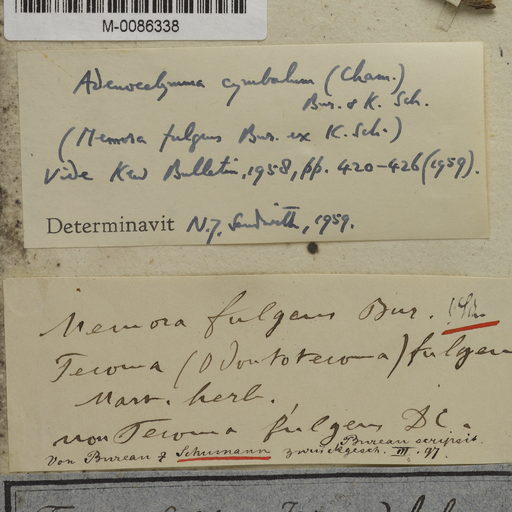 M-0086338
Adenocalymma cymbalum (Cham.)
Bur. & K. Sch.
(Memora fulgens Bur. ex K. Sch.)
Vide Kew Bulletin, 1958, pp. 420-426 (1959).
Determinavit N.Y. Sandwith, 1959.
Memora fulgens Bur.
Tecoma (Odontotecoma) fulgens
Mart. herb.
non Tecoma fulgens DC.
Bureau scripsit.
Von Bureau & Schumann zurückgesch. III. 97.